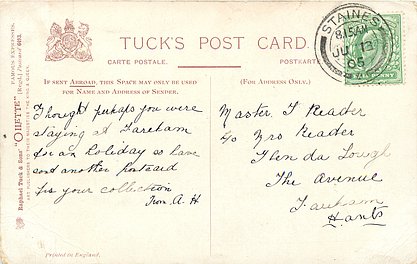 TUCK'S POST CARD.
CARTE POSTALE.
POSTKARTE
IF SENT ABROAD, THIS SPACE MAY ONLY BE USED
FOR NAME AND ADDRESS OF SENDER.
(FOR ADDRESS ONLY.)
Raphael Tuck & Sons' "OILETTE" [Regd.] Postcard
FAMOUS EXPRESSES.
STAINES
JU 13
05
Thought perhaps you were
staying at Fareham
for an holiday so have
sent another postcard
for your collection
From A. H
Master. T Reader
To Mrs Reader
Glen da Lough
The Avenue
Fareham
Hants
Printed in England.